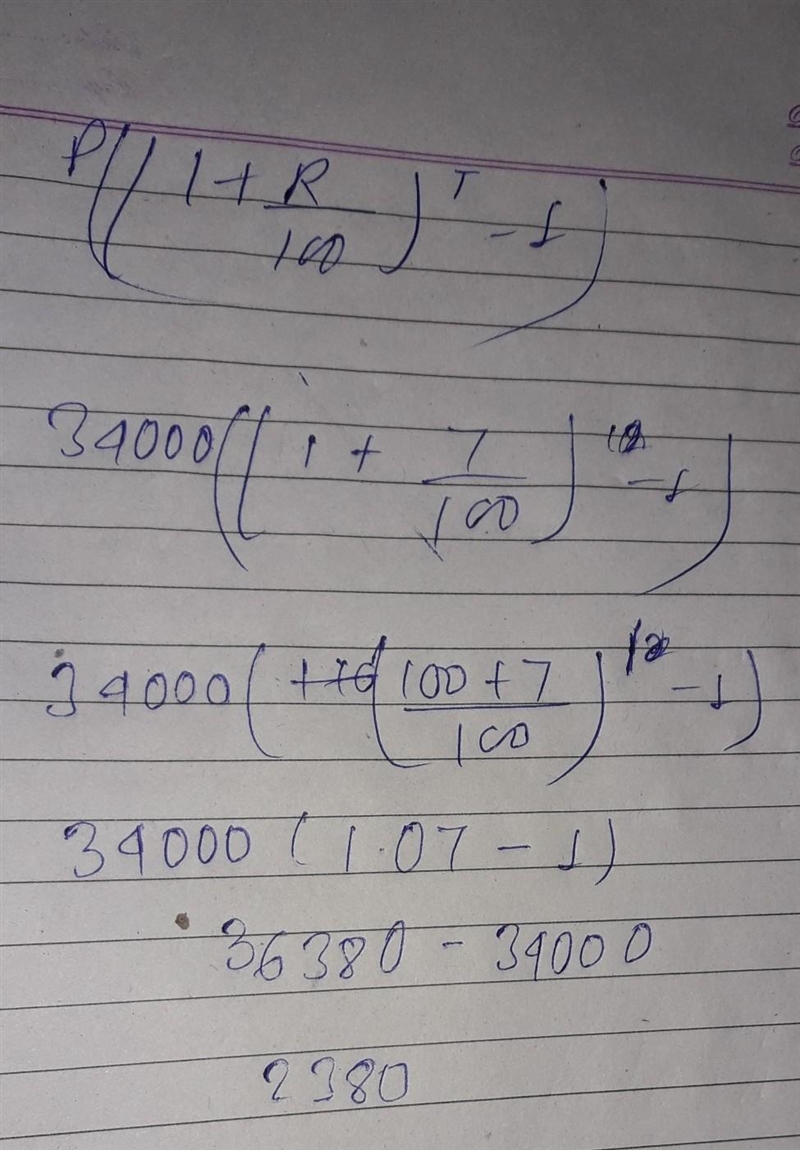 P((1+R/100)^T - 1)
34000((1 + 7/100)^12 - 1)
34000((100+7/100)^12 - 1)
34000 (1.07 - 1)
36380 - 34000
2380